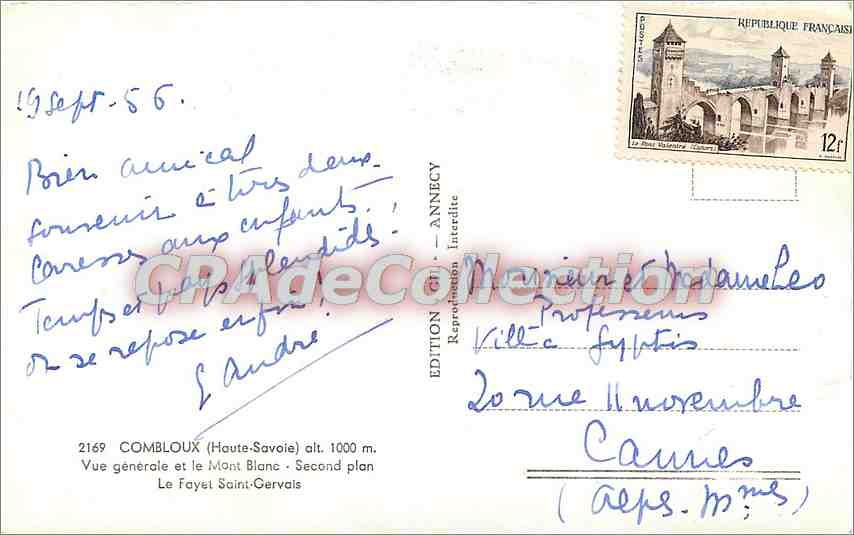 19 Sept. 56.
Bien amical
souvenir à tous deux.
Caresses aux enfants.
Temps et pays splendides.
on se repose enfin!
André.
2169 COMBLOUX (Haute-Savoie) alt. 1000 m.
Vue générale et le Mont Blanc - Second plan
Le Fayet Saint-Gervais
EDITION "GIL" — ANNECY
Reproduction Interdite
CPAdeCollection
POSTES
REPUBLIQUE FRANÇAISE
Le Pont Valentré (Cahors)
12f
Monsieur et Madame Leo
Professeurs
Villa Gyptis
20 rue 11 novembre
Cannes
(Alpes-Mmes)